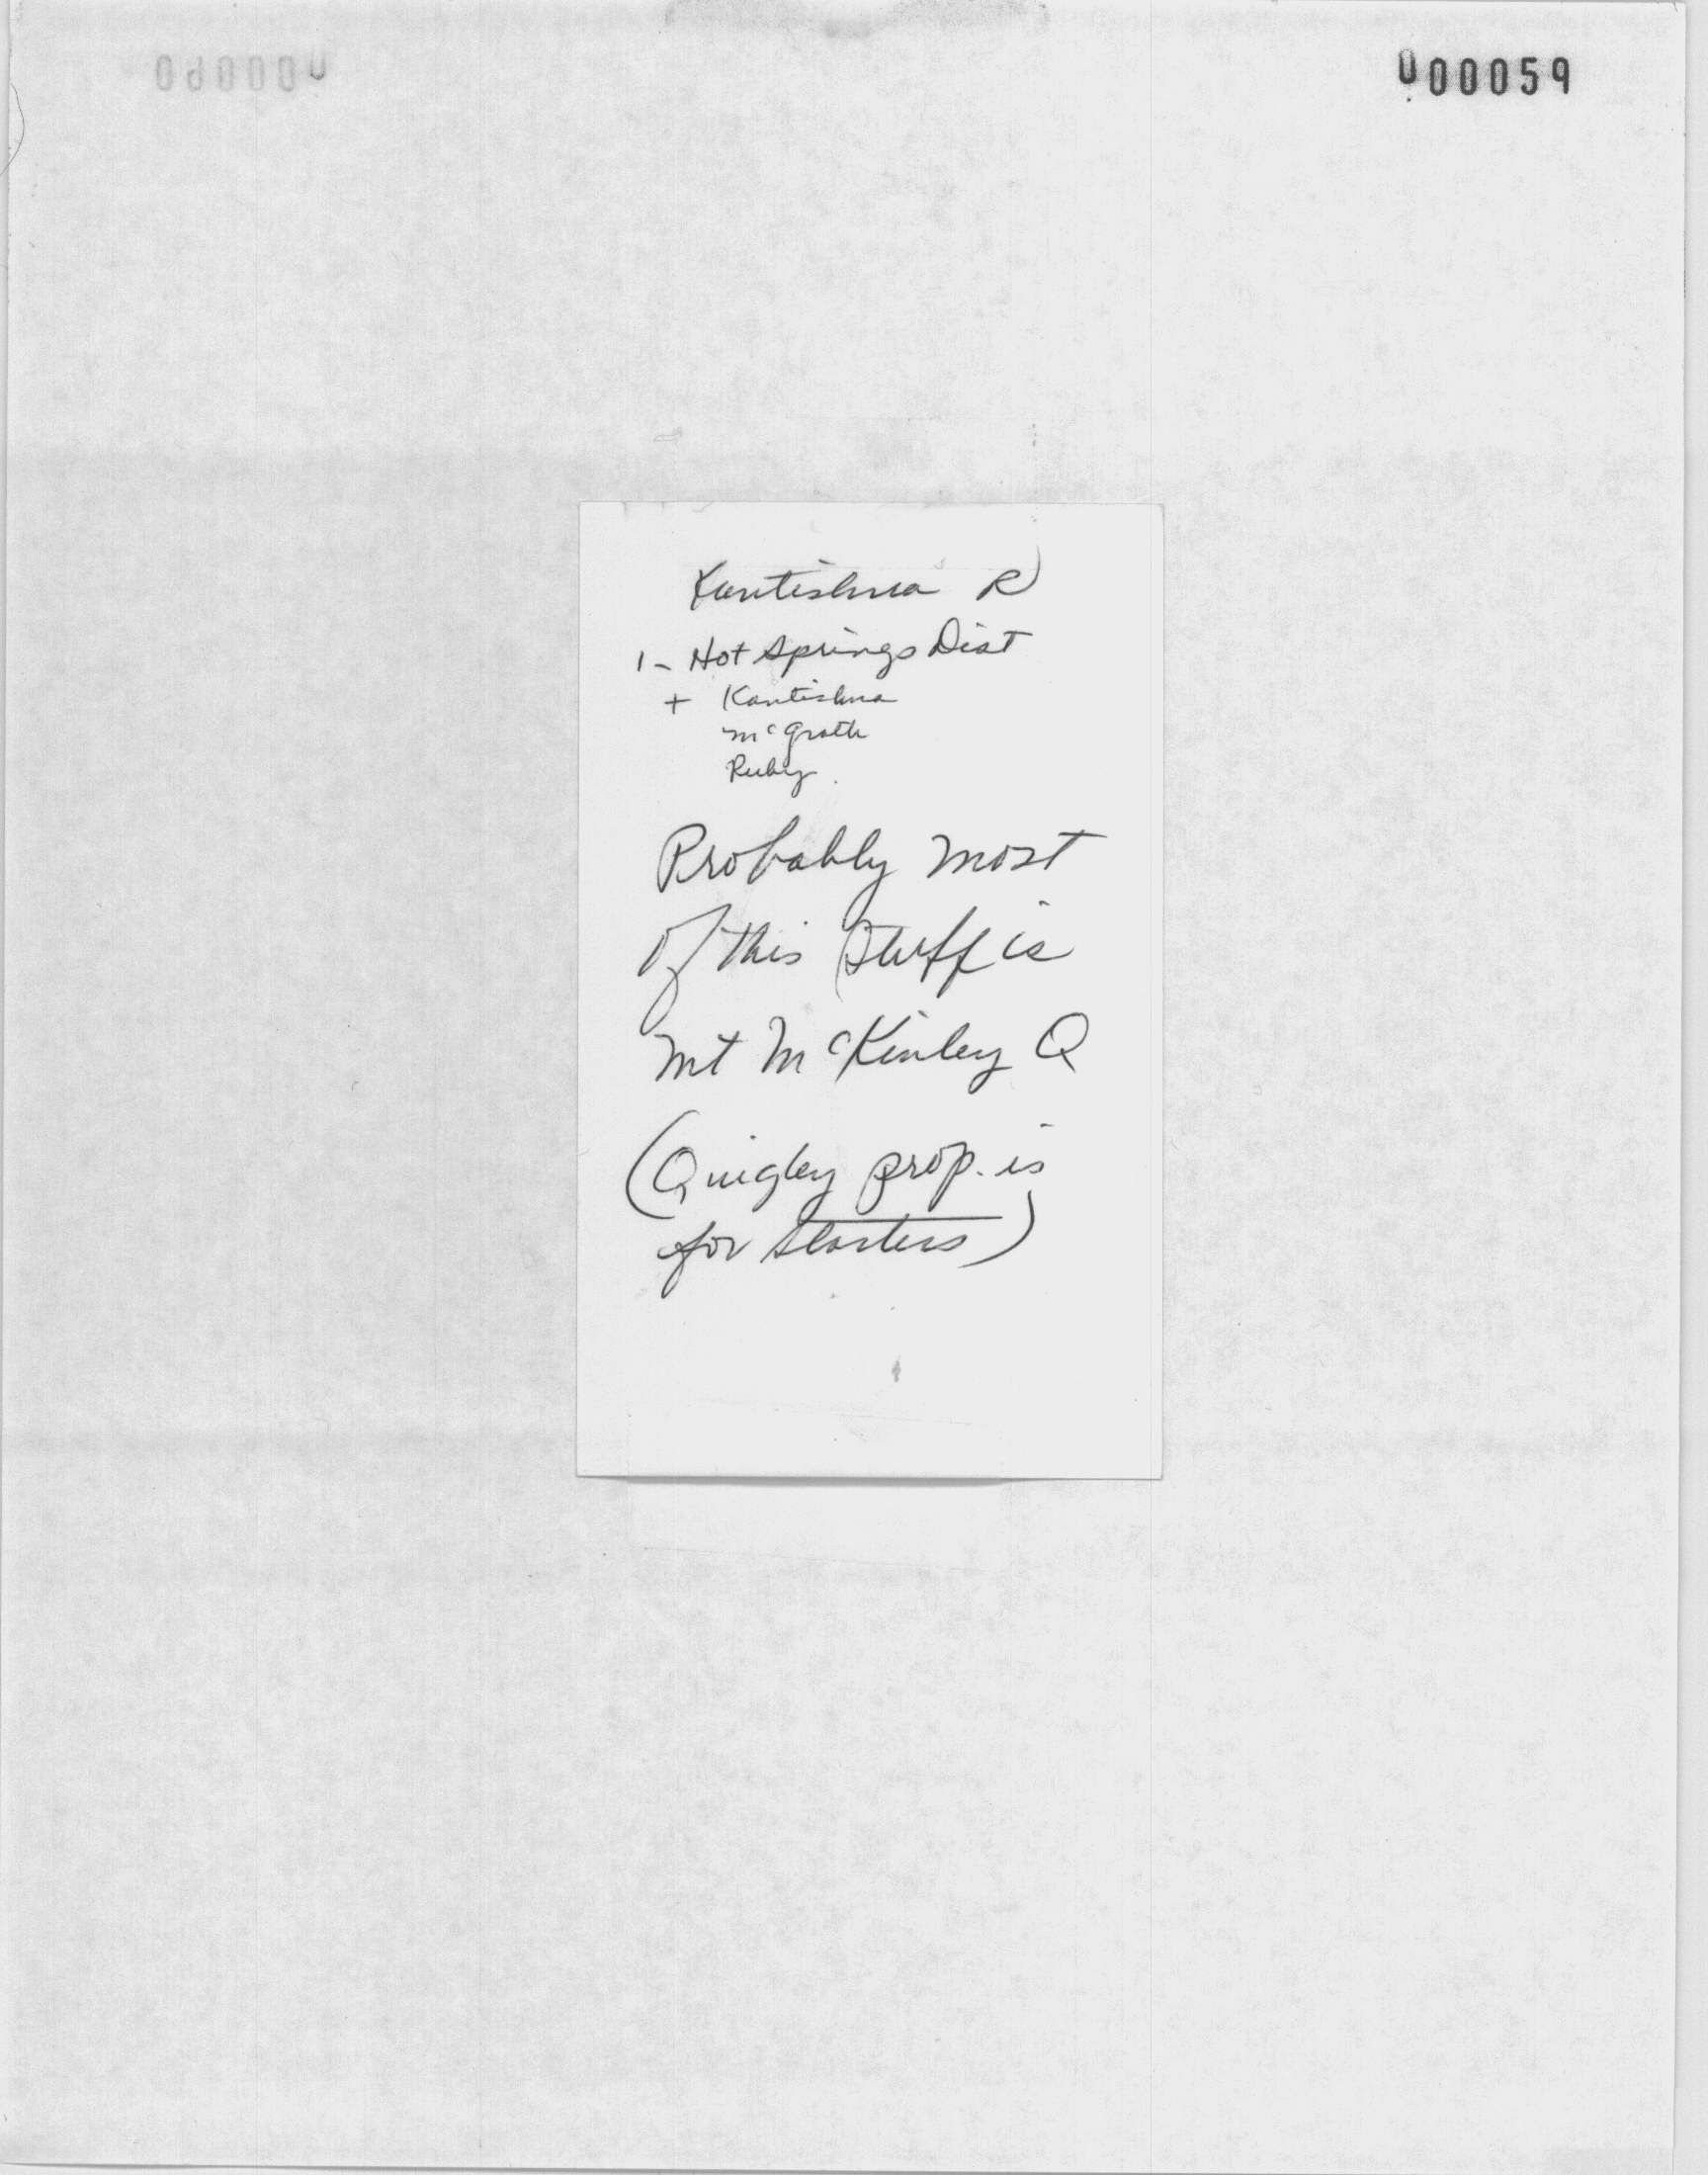 000059
Kantishna R
1- Hot Springs Dist
+ Kantishna
McGrath
Ruby
Probably most
of this stuff is
Mt McKinley Q
(Quigley prop. is
for starters)